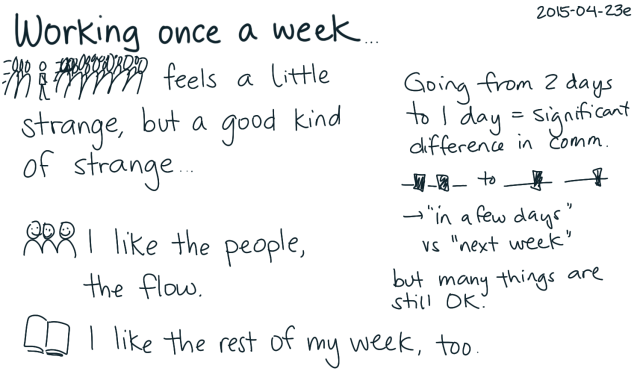 2015-04-23e
Working once a week...
feels a little
strange, but a good kind
of strange...
I like the people,
the flow.
I like the rest of my week, too.
Going from 2 days
to 1 day = significant
difference in comm.
to
→ "in a few days"
vs "next week"
but many things are
still OK.